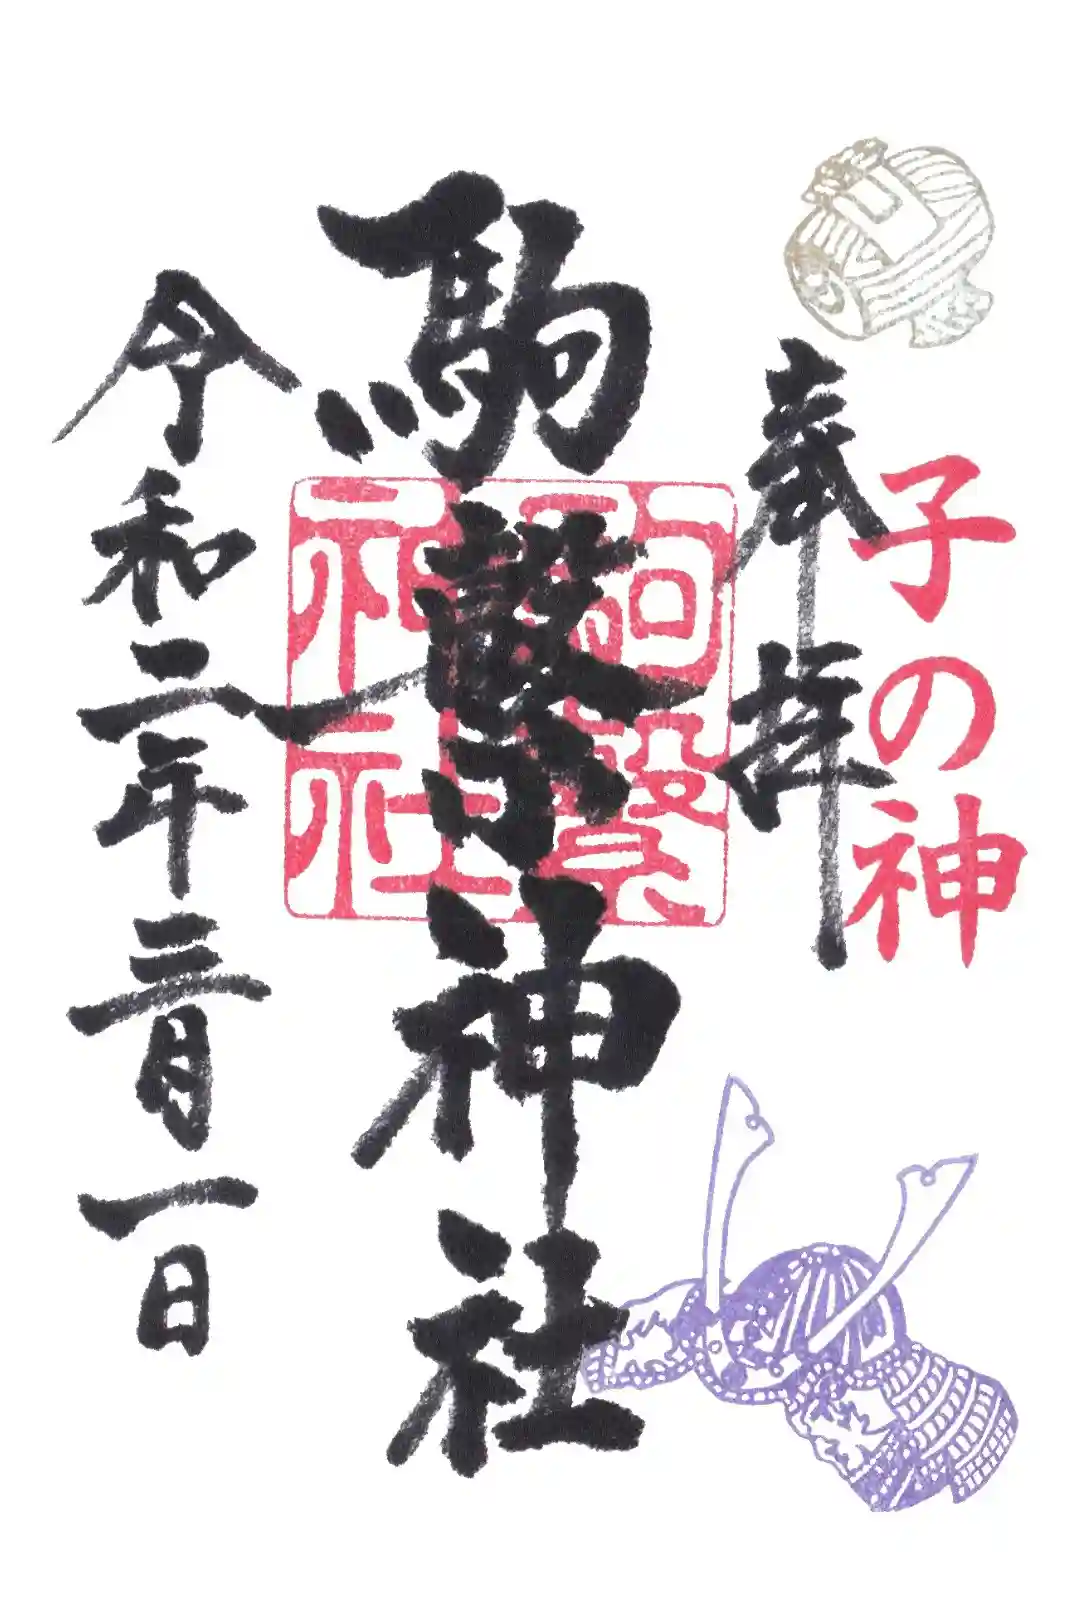 子の神
奉拝
駒繋神社
駒繋神社
令和二年三月一日